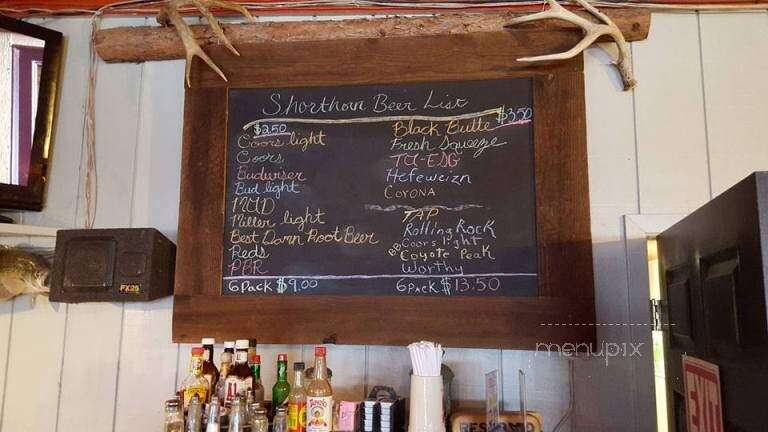 Shorthorn Beer List
$2.50
Coors light
Coors
Budwiser
Bud light
MGD
Miller light
Best Damn Root Beer
Reds
PBR
6 Pack $9.00
$3.50
Black Butte
Fresh Squeeze
Hefeweizn
CORONA
TAP
Rolling Rock
Coors light
Coyote Peak
Worthy
6 PACK $13.50
FX25
menupix
EXIT